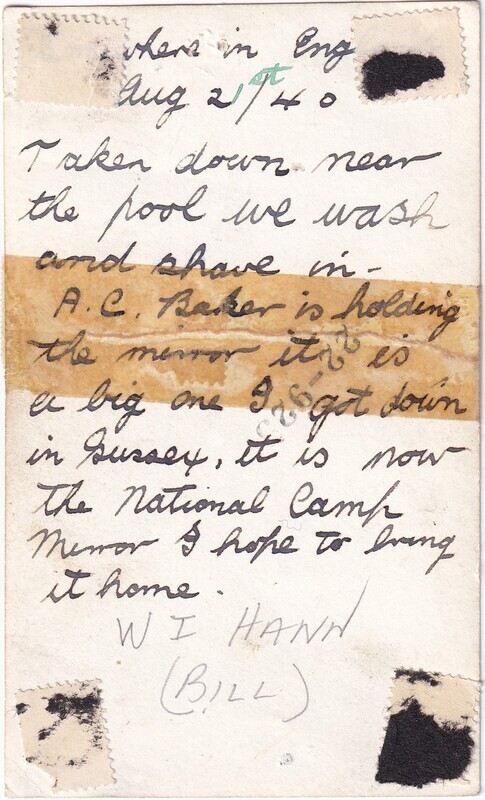 where in Eng
Aug 21st/40
Taken down near
the pool we wash
and shave in -
A.C. Baker is holding
the mirror it is
a big one I got down
in Sussex, it is now
the National Camp
Mirror I hope to bring
it home.
W I HANN
(BILL)